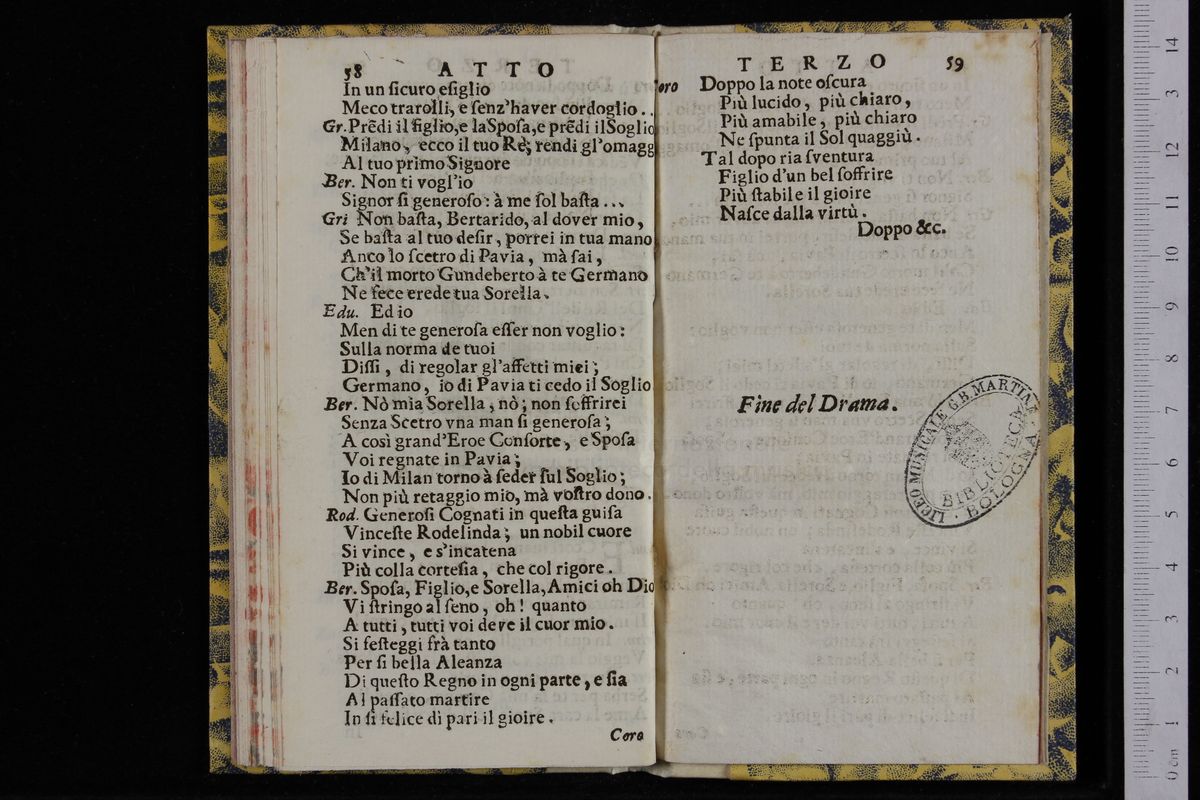 58 ATTO
In un ſicuro eſiglio
Meco trarolli, e ſenz'haver cordoglio..
Gr. Prēdi il figlio,e la Spoſa,e prēdi il Soglio
Milano, ecco il tuo Rè; rendi gl'omagg
Al tuo primo Signore
Ber. Non ti vogl'io
Signor ſi generoſo: à me ſol baſta...
Gri Non baſta, Bertarido, al dover mio,
Se baſta al tuo deſir, porrei in tua mano
Anco lo ſcetro di Pavia, mà ſai,
Ch'il morto Gundeberto à te Germano
Ne fece erede tua Sorella.
Edu. Ed io
Men di te generoſa eſſer non voglio:
Sulla norma de tuoi
Diſſi, di regolar gl'affetti miei;
Germano, io di Pavia ti cedo il Soglio
Ber. Nò mia Sorella, nò; non ſoffrirei
Senza Scetro vna man ſi generoſa;
A così grand'Eroe Conſorte, e Spoſa
Voi regnate in Pavia;
Io di Milan torno à ſeder ſul Soglio;
Non più retaggio mio, mà voſtro dono.
Rod. Generoſi Cognati in queſta guiſa
Vinceſte Rodelinda; un nobil cuore
Si vince, e s'incatena
Più colla corteſia, che col rigore.
Ber. Spoſa, Figlio,e Sorella, Amici oh Dio
Vi ſtringo al ſeno, oh! quanto
A tutti, tutti voi deve il cuor mio.
Si feſteggi frà tanto
Per ſi bella Aleanza
Di queſto Regno in ogni parte, e ſia
Al paſſato martire
In ſi felice dì pari il gioire.
Coro
TERZO 59
oro Doppo la note oſcura
Più lucido, più chiaro,
Più amabile, più chiaro
Ne ſpunta il Sol quaggiù.
Tal dopo ria ſventura
Figlio d'un bel ſoffrire
Più ſtabile il gioire
Naſce dalla virtù.
Doppo &c.
Fine del Drama.
LICEO MUSICALE G.B. MARTINI
BIBLIOTECA
BOLOGNA